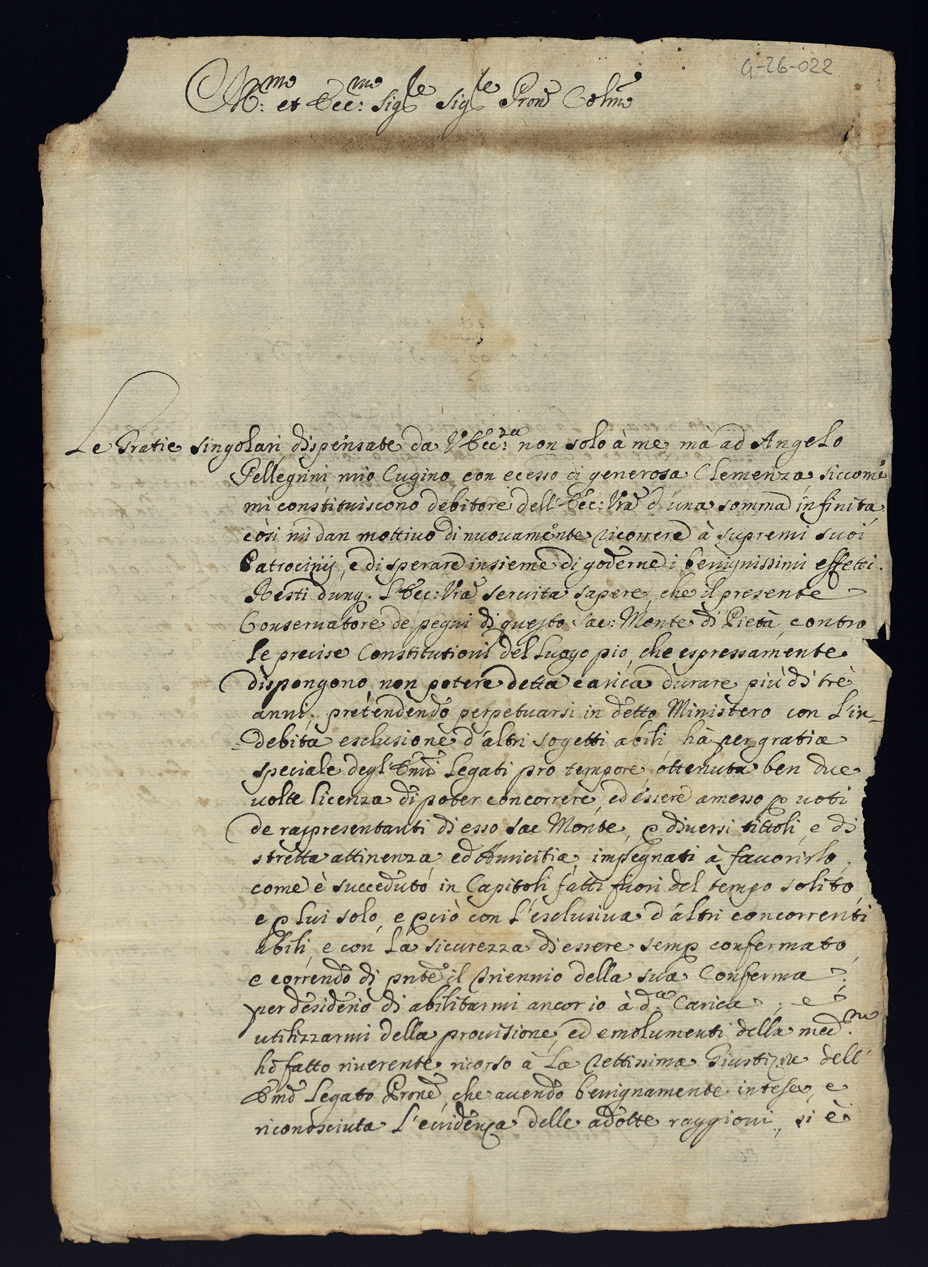 G-26-022
Ill:mo et Ecc:mo Sig.re Sig.re Pron̄e Colm̄o
Le Gratie singolari dispensate da V. Ecc:za non solo à me mà ad Angelo
Pellegrini mio Cugino con ecesso di generosa Clemenza siccome
mi constituiscono debitore dell'Ecc: Vra d'una somma infinita
così mi dan mottivo di nuovamente ricorrere à supremi suoi
Patrocinij, e di sperare insieme di goderne i benignissimi effetti.
Resti dunq. l'Ecc: Vra servita sapere, che il presente
Conservatore de pegni di questo Sac: Monte di Pietà, contro
le precise Constitutioni del Luogo pio, che espressamente
dispongono, non potere detta carica durare più di trè
anni, pretendendo perpetuarsi in detto Ministero con l'in-
=debita esclusione d'altri sogetti abili hà per gratia
speciale degl'Emi Legati pro tempore ottenuta ben due
volte licenza di poter concorrere, ed essere amesso p voti
de rappresentanti di esso Sac Monte, p diversi tittoli, e di
stretta attinenza ed Amicitia, impegnati à favorirlo,
come è succeduto in Capitoli fatti fuori del tempo solito
e p lui solo, e pciò con l'esclusiva d'altri concorrenti
abili, e con la sicurezza di essere semp confermato
e correndo di pnte il Triennio della sua Conferma
per desiderio di abilitarmi ancor io à d.a Carica, e
utilizzarmi della provisione, ed emolumenti della med.ma
hò fatto riverente ricorso à la rettissima Giustizia dell'
Emo Legato Prone, che avendo benignamente intesa, e
riconosciuta l'evidenza delle adotte raggioni, si è